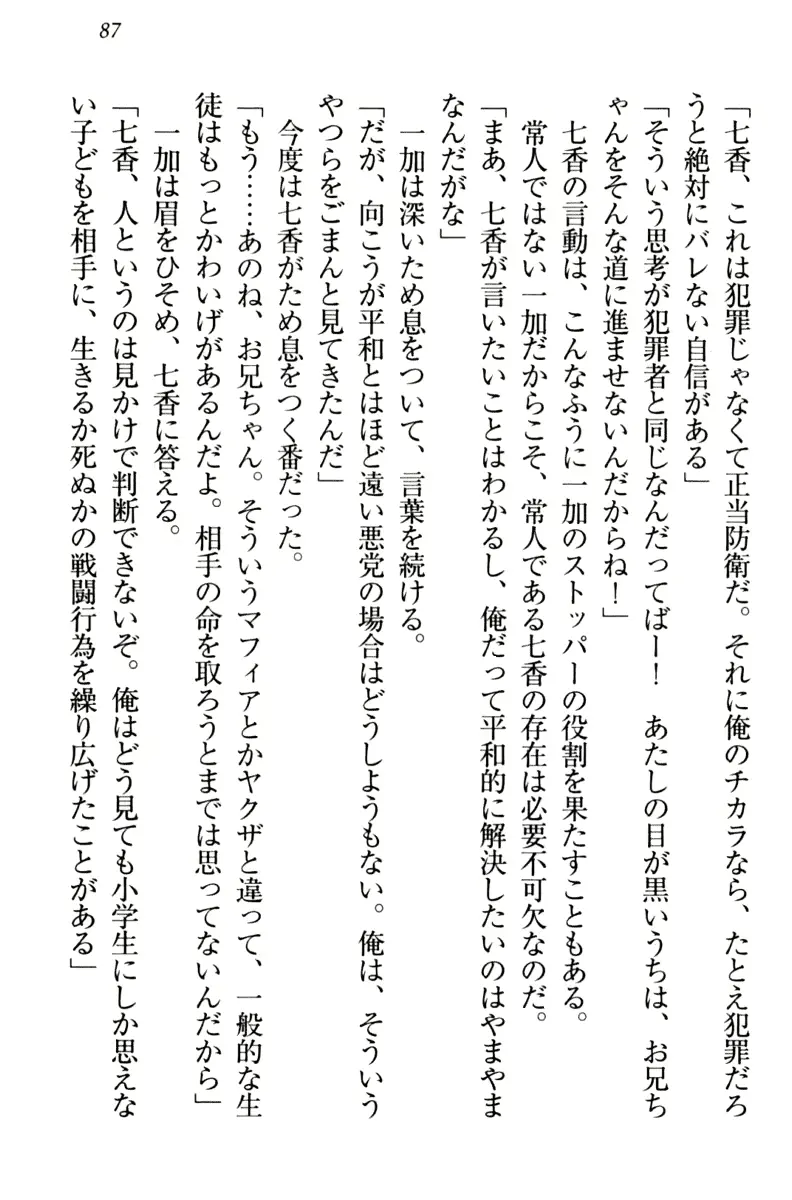 87
「七香、これは犯罪じゃなくて正当防衛だ。それに俺のチカラなら、たとえ犯罪だろ
うと絶対にバレない自信がある」
「そういう思考が犯罪者と同じなんだってばー！　あたしの目が黒いうちは、お兄ち
ゃんをそんな道に進ませないんだからね！」
　七香の言動は、こんなふうに一加のストッパーの役割を果たすこともある。
　常人ではない一加だからこそ、常人である七香の存在は必要不可欠なのだ。
「まあ、七香が言いたいことはわかるし、俺だって平和的に解決したいのはやまやま
なんだがな」
　一加は深いため息をついて、言葉を続ける。
「だが、向こうが平和とはほど遠い悪党の場合はどうしようもない。俺は、そういう
やつらをごまんと見てきたんだ」
　今度は七香がため息をつく番だった。
「もう……あのね、お兄ちゃん。そういうマフィアとかヤクザと違って、一般的な生
徒はもっとかわいげがあるんだよ。相手の命を取ろうとまでは思ってないんだから」
　一加は眉をひそめ、七香に答える。
「七香、人というのは見かけで判断できないぞ。俺はどう見ても小学生にしか思えな
い子どもを相手に、生きるか死ぬかの戦闘行為を繰り広げたことがある」